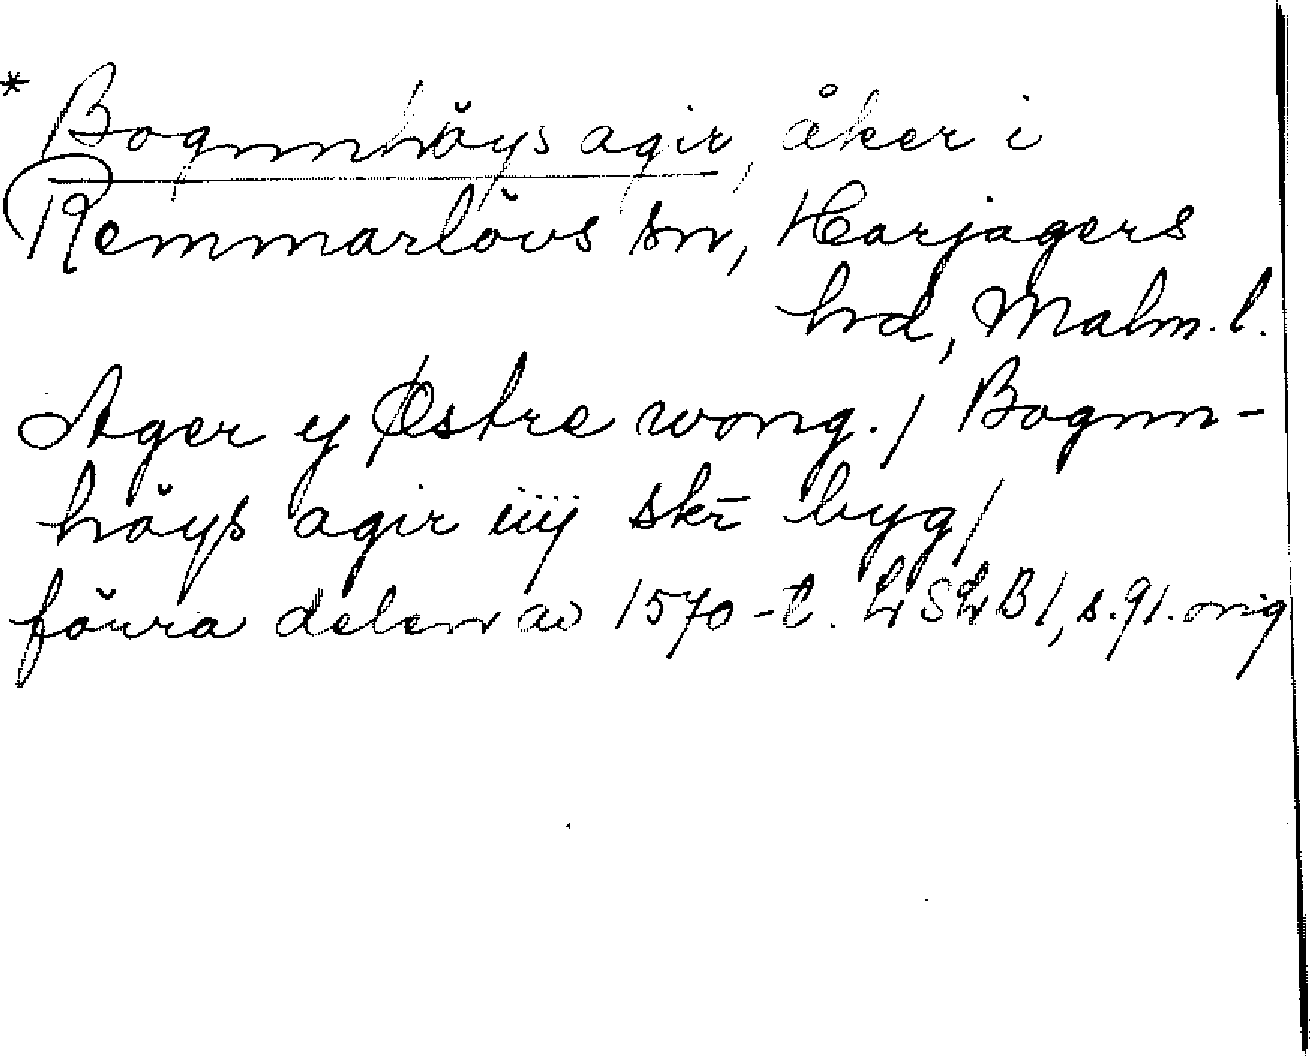 * Bognnhöys agir, åker i
Remmarlövs sn, Harjagers
hd, Malm. l.
Ager y Østre wong. / Bognn-
höys agir iiij skr̄ byg /
förra delen av 1570-t. LSLB 1, s. 91. orig